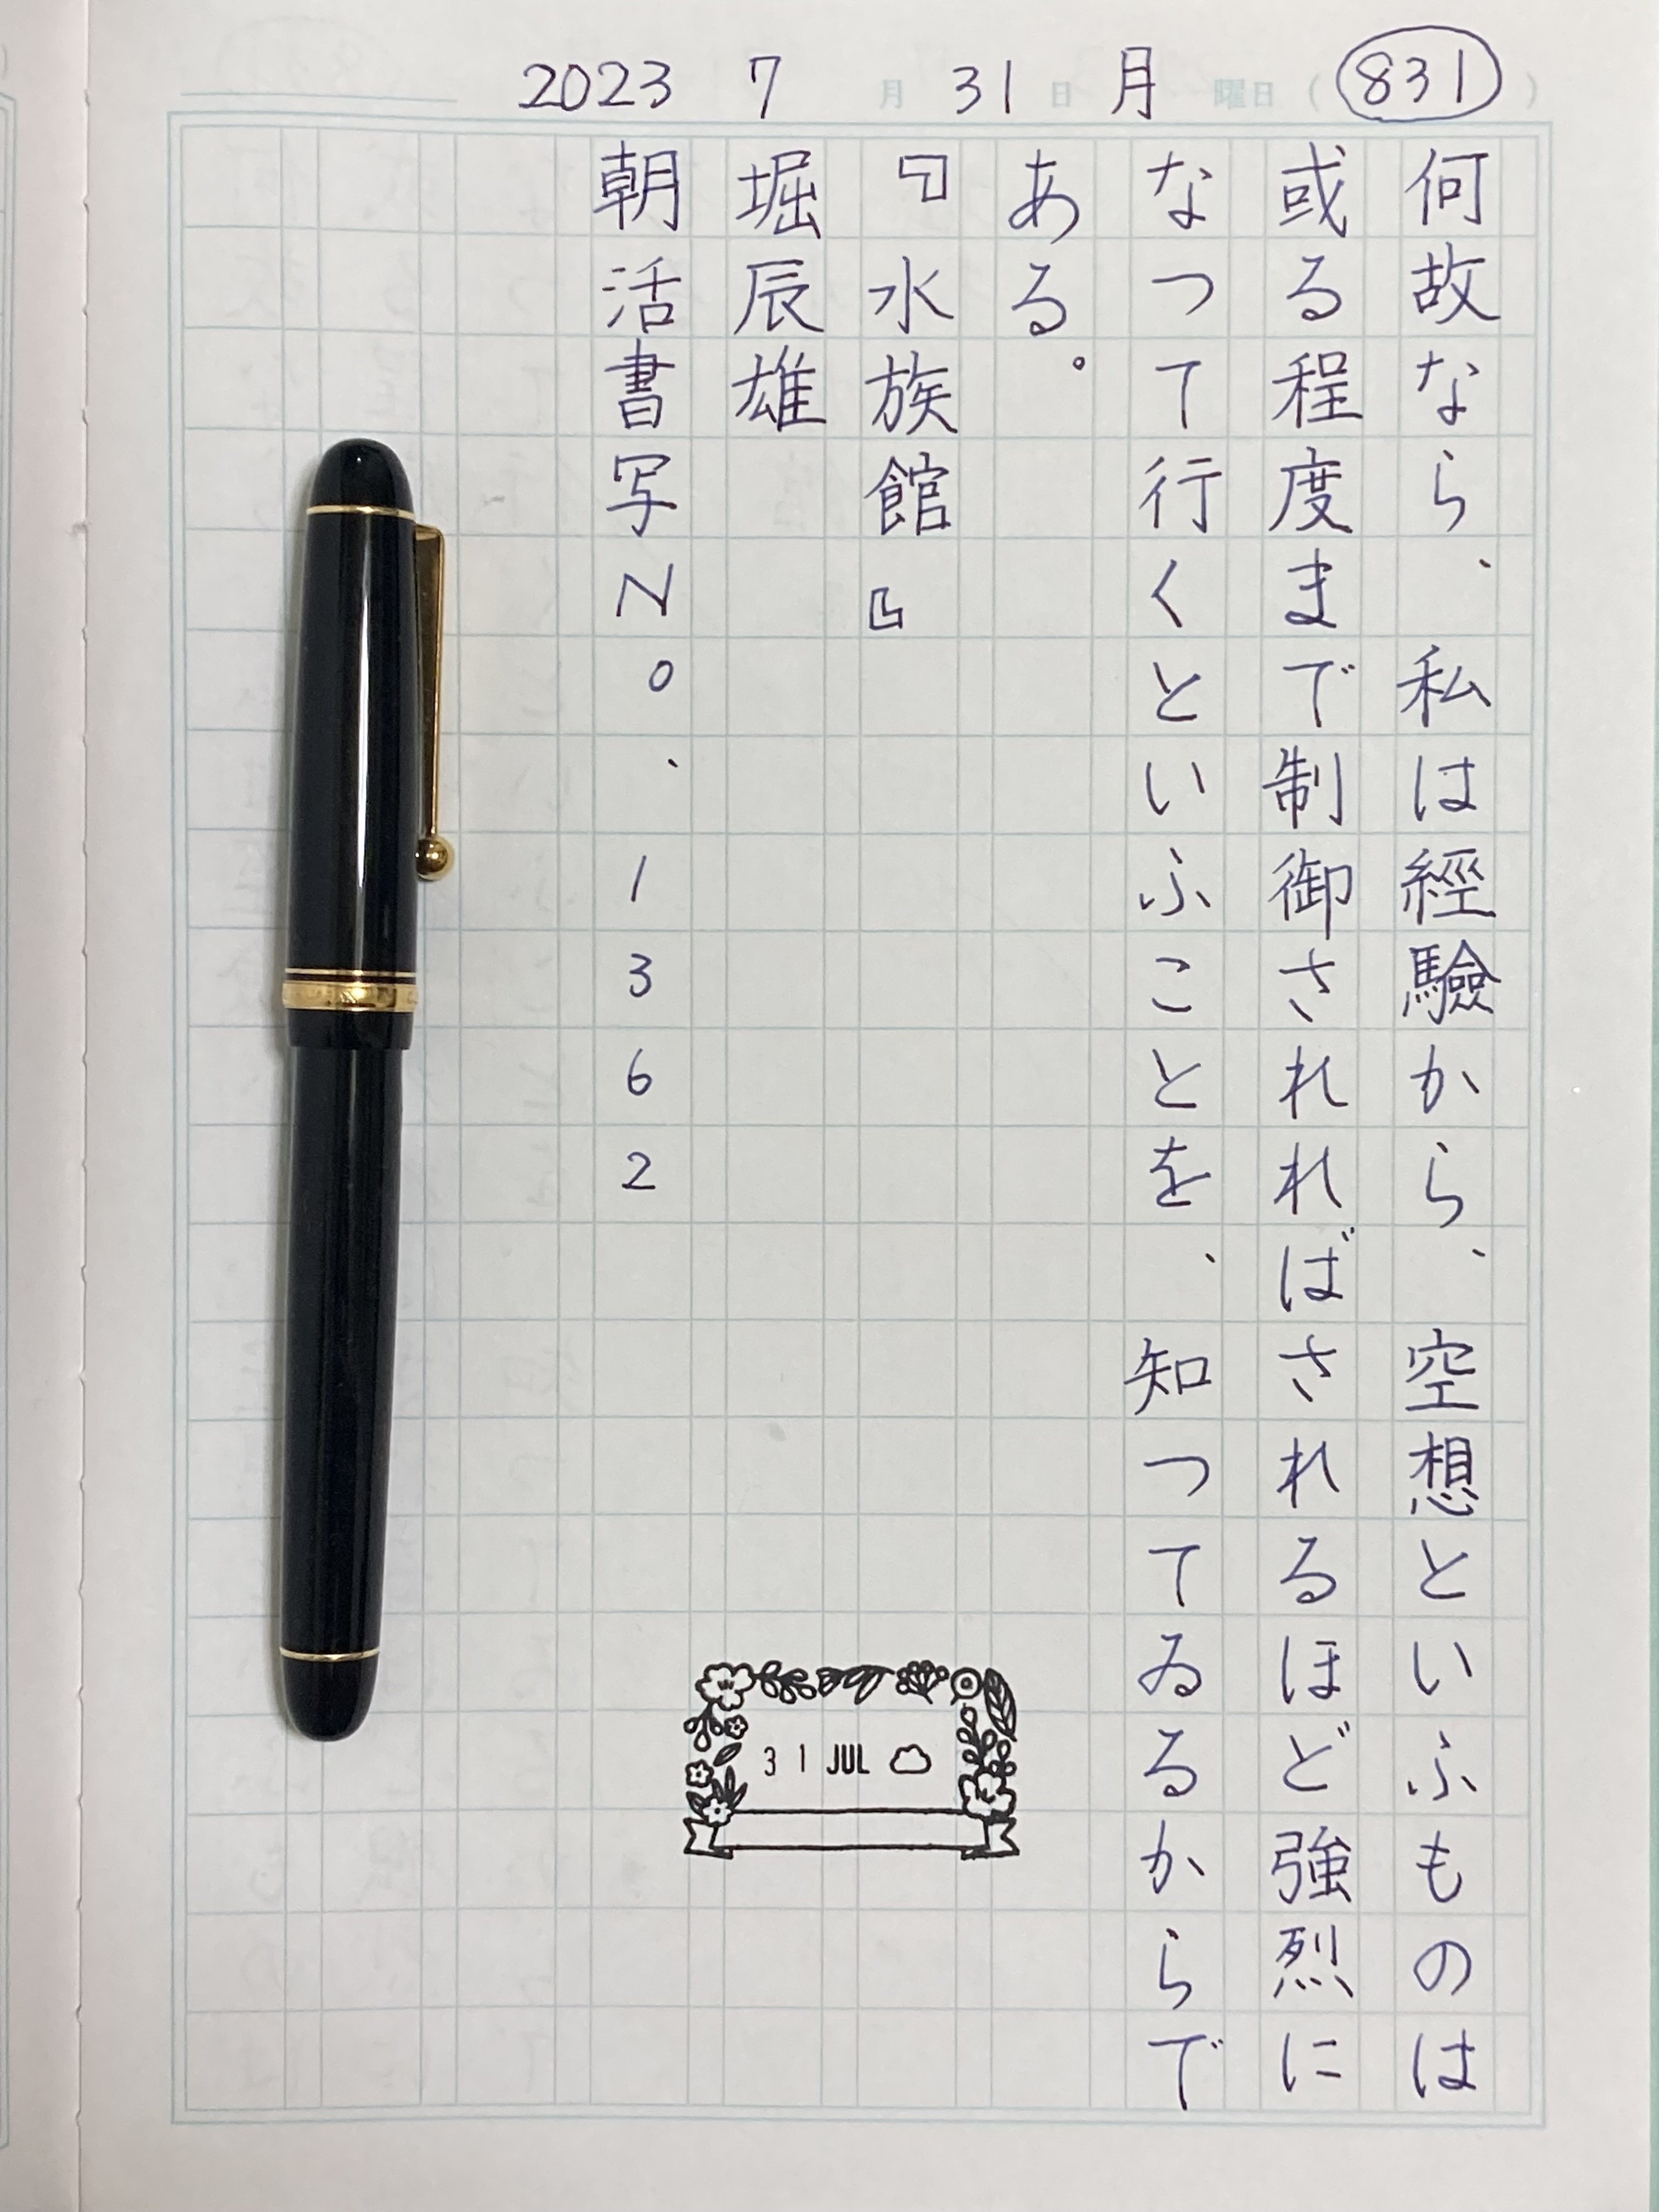 2023 7月31日月曜日(831)
何故なら、私は經驗から、空想といふものは
或る程度まで制御されればされるほど強烈に
なつて行くといふことを、知つてゐるからで
ある。
『水族館』
堀辰雄
朝活書写No.1362
31 JUL